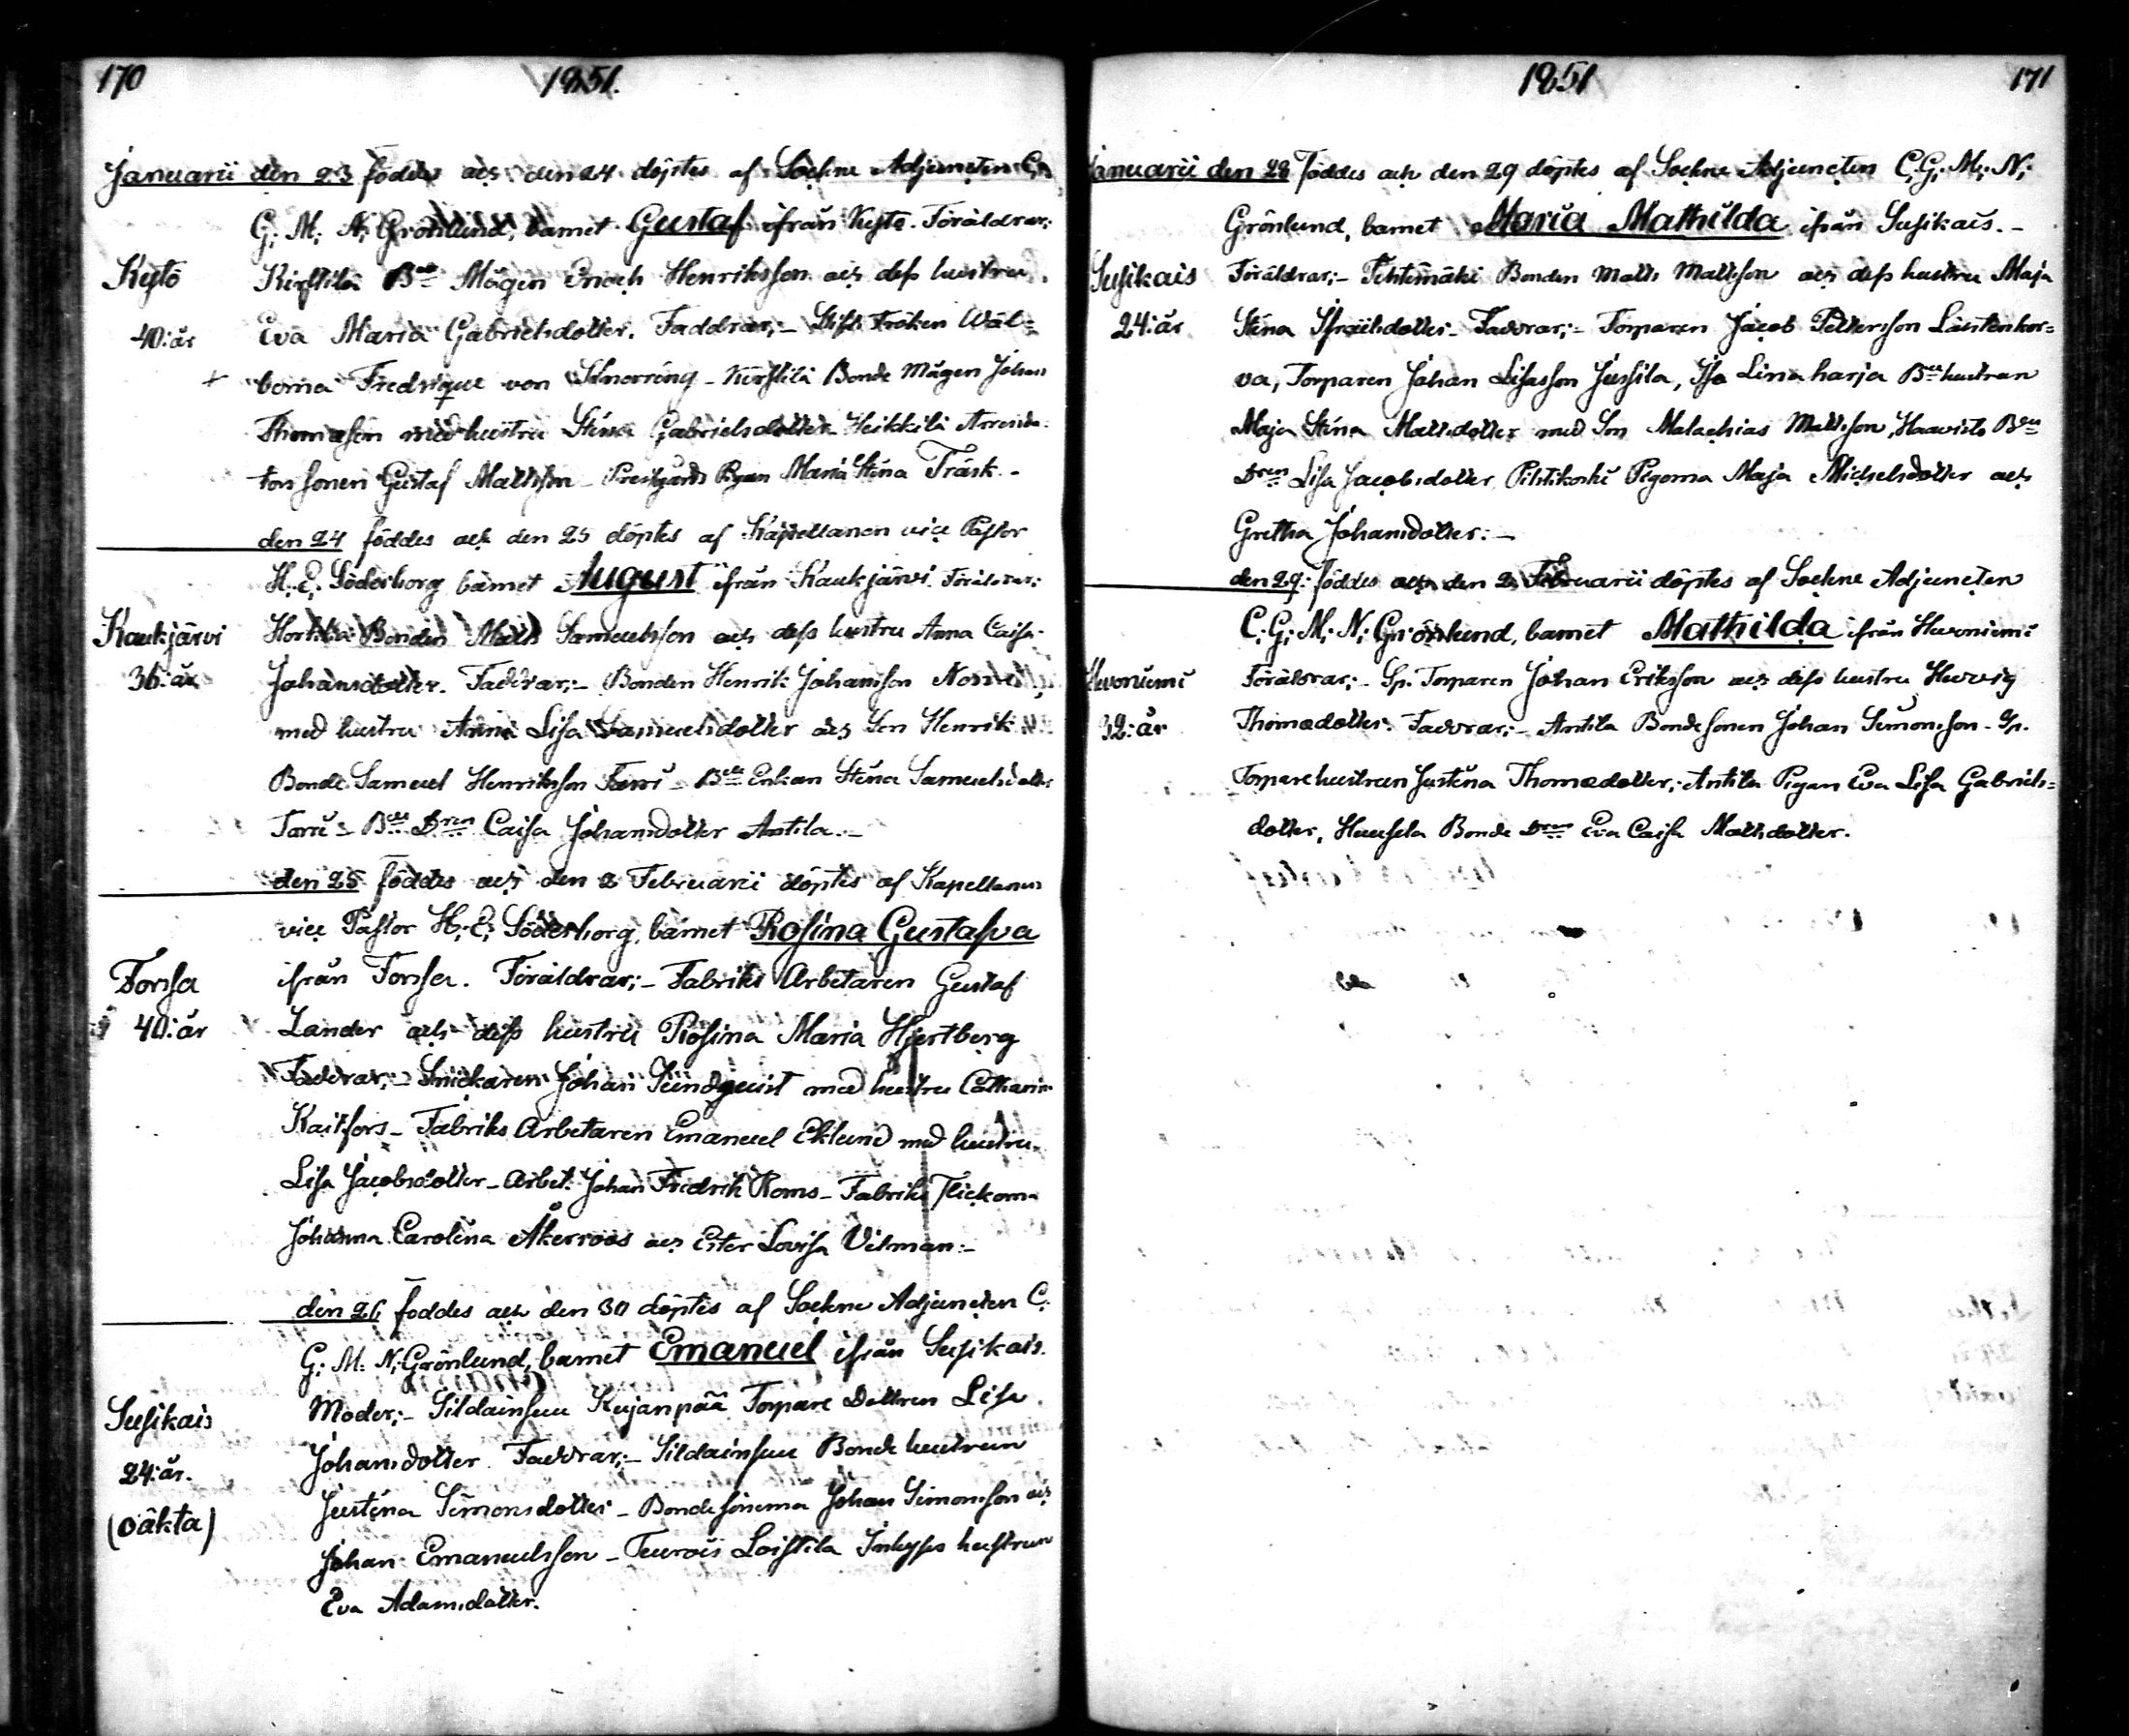 170
1851.
Januarii den 23 föddes och den 24 döptes af Sockne Adjuncten C.
G. M. N. Grönlund, barnet Gustaf ifrån Kyttö. Föräldrar:
Kyttö
Mågen Enoch Henriksson och dess hustru
40:år
Eva Maria Gabrielsdotter. Faddrar;- Stift Fröken Wal=
+ borna Fredrique von Schnorring - Bonde Mågen Johan
Thomasson med hustru Stina Gabrielsdotter - Heikkilä Arrenda-
tors sonen Gustaf Mattsson - Prestgårds Pigan Maria Stina Träsk. -
den 24 föddes och den 25 döptes af Kapellanen vice Pastor
H. E. Söderborg barnet August ifrån Kaukjärvi. Föräldrar:
Kaukjärvi
Bonden Matts Samuelsson och dess hustru Anna Caisa
36:år
Johansdotter. Faddrar;- Bonden Henrik Johansson
med hustru Anna Lisa Samuelsdotter och Son Henrik
Bonde Samuel Henriksson - Bde Enkan Stina Samuelsdotter
Torri - Bde Dren Caisa Johansdotter Antila. -
den 25 föddes och den 2 Februarii döptes af Kapellanen
vice Pastor H. E. Söderborg, barnet Rosina Gustafva
Forssa
ifrån Forssa. Föräldrar;- Fabriks Arbetaren Gustaf
40:år
Lander och dess hustru Rosina Maria Hjertberg
Faddrar;- Snickaren Johan Sundquist med hustru Catharina
Kaitfors - Fabriks Arbetaren Emanuel Eklund med hustru
Lisa Jacobsdotter - Arbet. Johan Fredrik Roms - Fabriks Flickorna
Johanna Carolina Åkerroos och Ester Lovisa Vilman:-
den 26 föddes och den 30 döptes af Sockne Adjuncten C.
G. M. N. Grönlund, barnet Emanuel ifrån Susikais.
Susikais
Moder;- Sildainsuu Kujanpää Torpare Dottren Lisa
24:år.
Johansdotter. Faddrar;- Sildainsuu Bonde hustrun
(oäkta)
Justina Simonsdotter - Bondesönerna Johan Simonsson och
Johan Emanuelsson - Teurois Loistila Inhyses hustrun
Eva Adamsdotter.
1851
171
Januarii den 28 föddes och den 29 döptes af Sockne Adjuncten C. G. M. N.
Grönlund, barnet Maria Mathilda ifrån Susikais. -
Susikais
Föräldrar;- Bonden Matts Mattsson och dess hustru Maja
24:år
Stina Israelsdotter - Faddrar;- Torparen Jacob Pettersson
va, Torparen Johan Jussila, Linaharja Bde hustrun
Maja Stina Mattsdotter med Son Malachias Mattsson, Haavisto Bde
Dren Lisa Jacobsdotter, Pigorna Maja Michelsdotter och
Gretha Johansdotter:-
den 29: föddes och den 2 Februarii döptes af Sockne Adjuncten
C. G. M. N. Grönlund, barnet Mathilda ifrån Huvoniemi
Föräldrar;- Sp. Torparen Johan Eriksson och dess hustru Hedvig
32:år
Thomædotter. Faddrar;- Antila Bondesonen Johan Simonsson - Sp.
Torparehustrun Justina Thomædotter; Antila Pigan Eva Lisa Gabriels=
dotter, Bonde Dren Eva Caisa Mattsdotter.